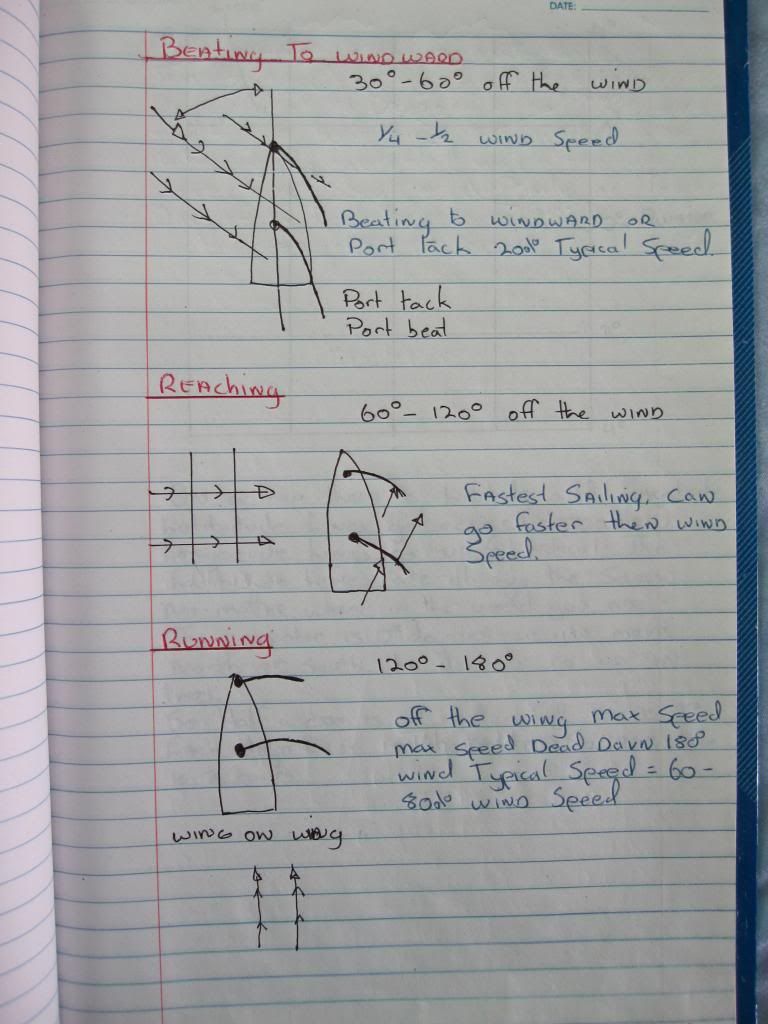 DATE:
BEATING TO WINDWARD
30° - 60° off the WIND
1/4 - 1/2 WIND Speed
Beating to WINDWARD OR
Port tack 20% Typical Speed.
Port tack
Port beat
REACHING
60° - 120° off the WIND
FASTEST SAILING. CAN
go faster then WIND
Speed.
RUNNING
120° - 180°
off the wing max Speed
max speed Dead Davn 180°
wind Typical Speed = 60 -
80% WIND Speed
WING ON WING